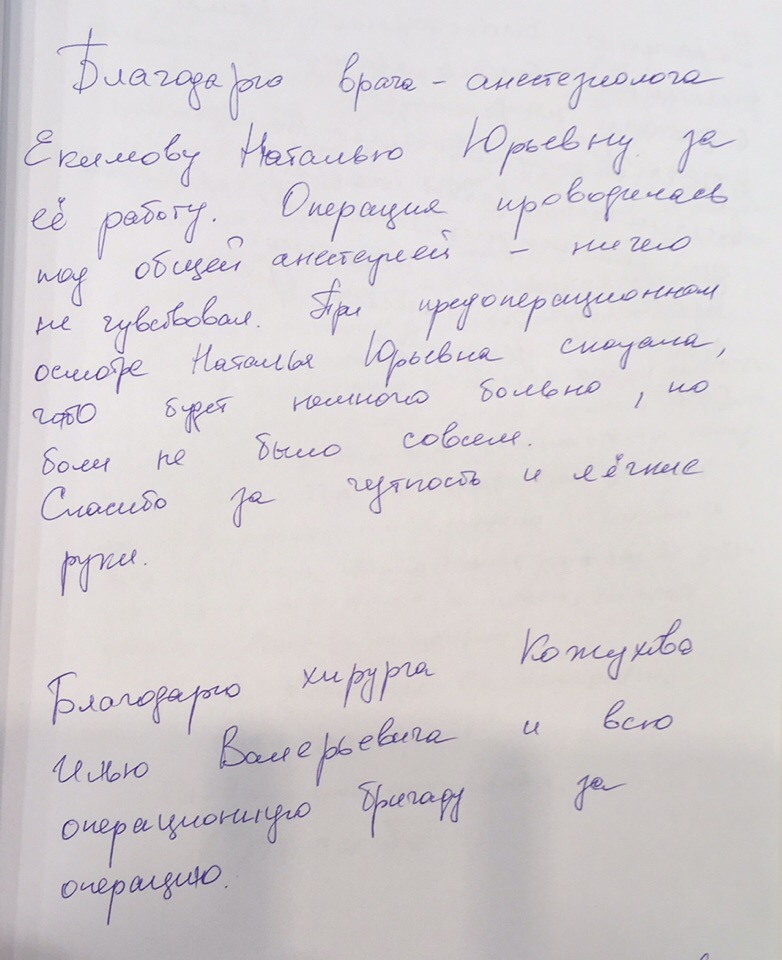 Благодарю врача - анестезиолога
Екимову Наталью Юрьевну за
её работу. Операция проводилась
под общей анестезией - ничего
не чувствовал. При предоперационном
осмотре Наталья Юрьевна сказала,
что будет немного больно, но
боли не было совсем.
Спасибо за чуткость и лёгкие
руки.
Благодарю хирурга Кожухова
Илью Валерьевича и всю
операционную бригаду за
операцию.